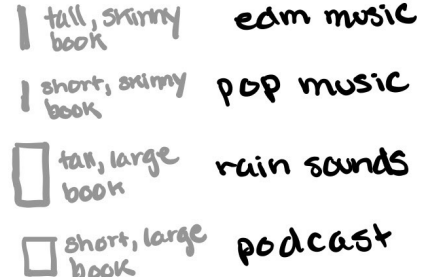 tall, skinny
book
edm music
short, skinny
book
pop music
tall, large
book
rain sounds
short, large
book
podcast